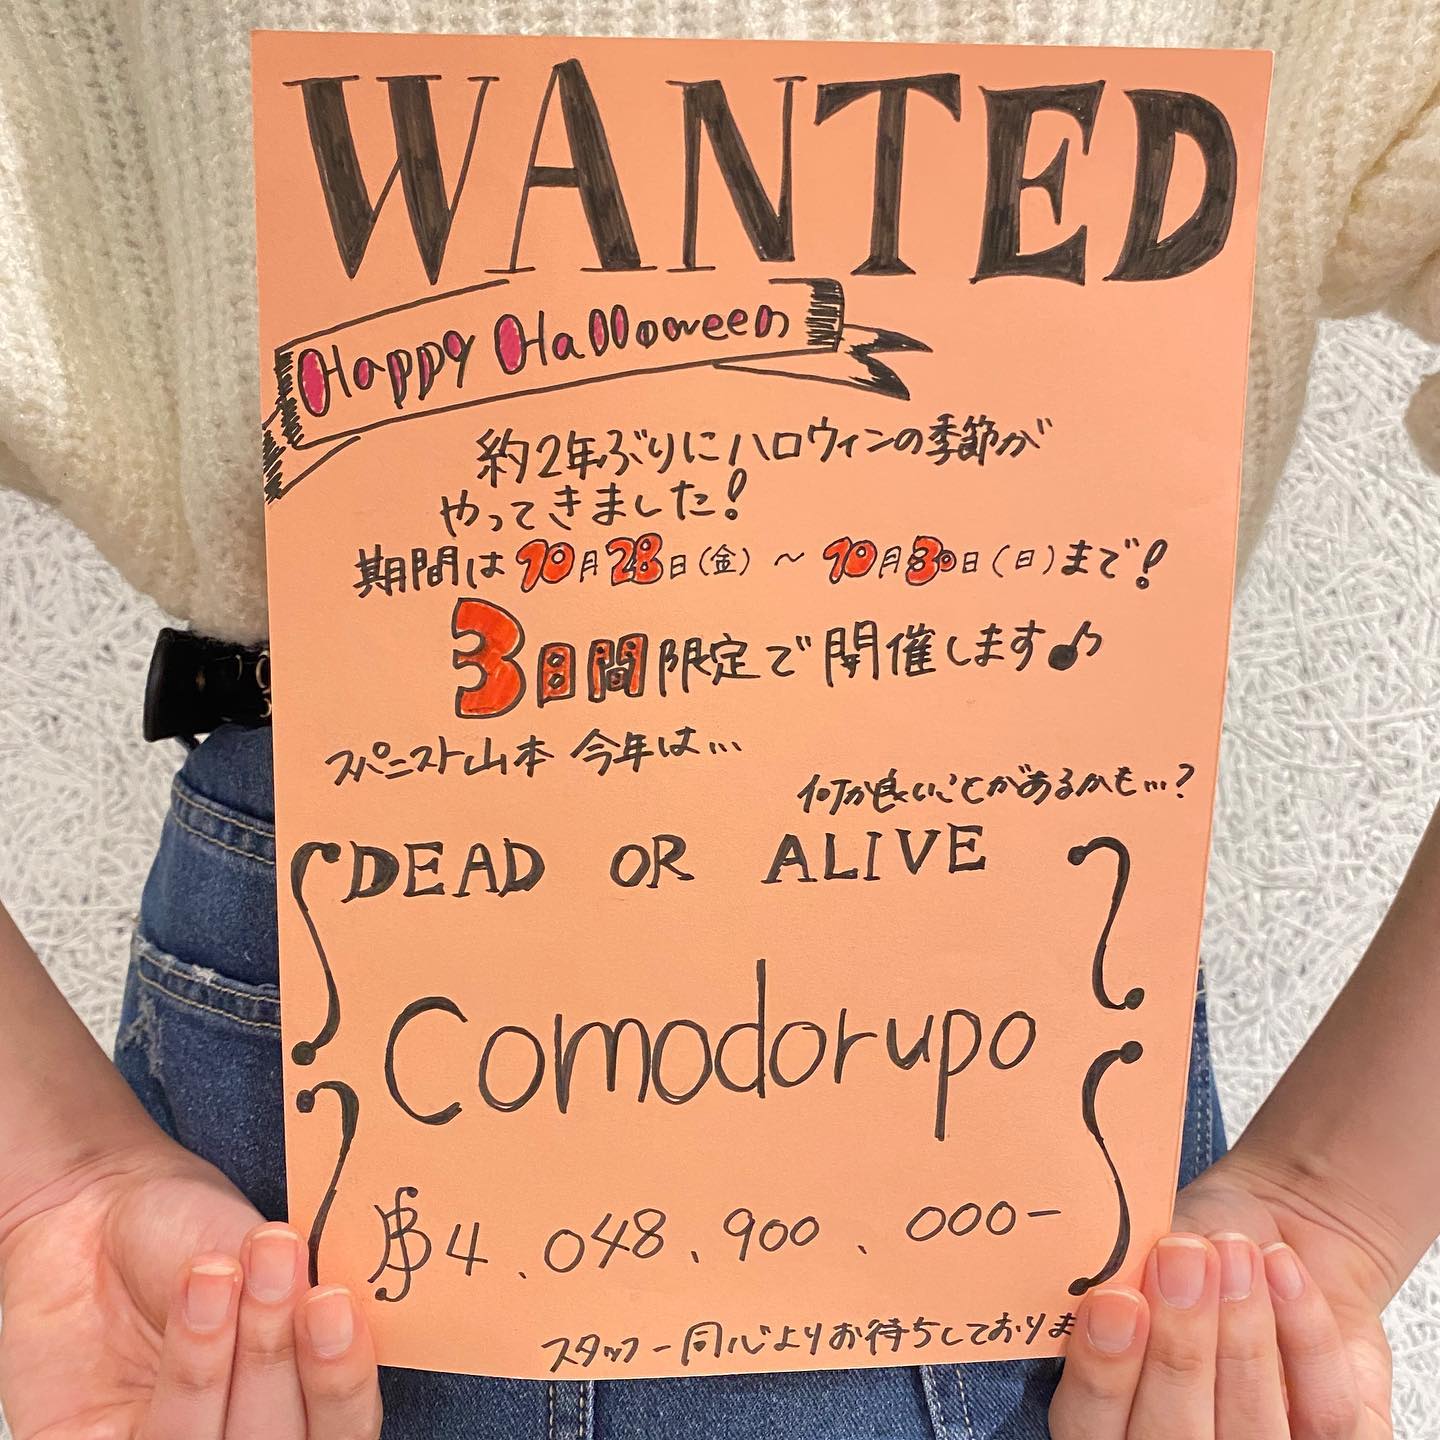 WANTED
Happy Halloween
約2年ぶりにハロウィンの季節が
やってきました!
期間は10月28日(金)～10月30日(日)まで!
3日間限定で開催します♪
スパニスト山本 今年は…
何か良いことがあるかも…?
DEAD OR ALIVE
Comodorupo
฿4,048,900,000-
スタッフ一同心よりお待ちしておりま